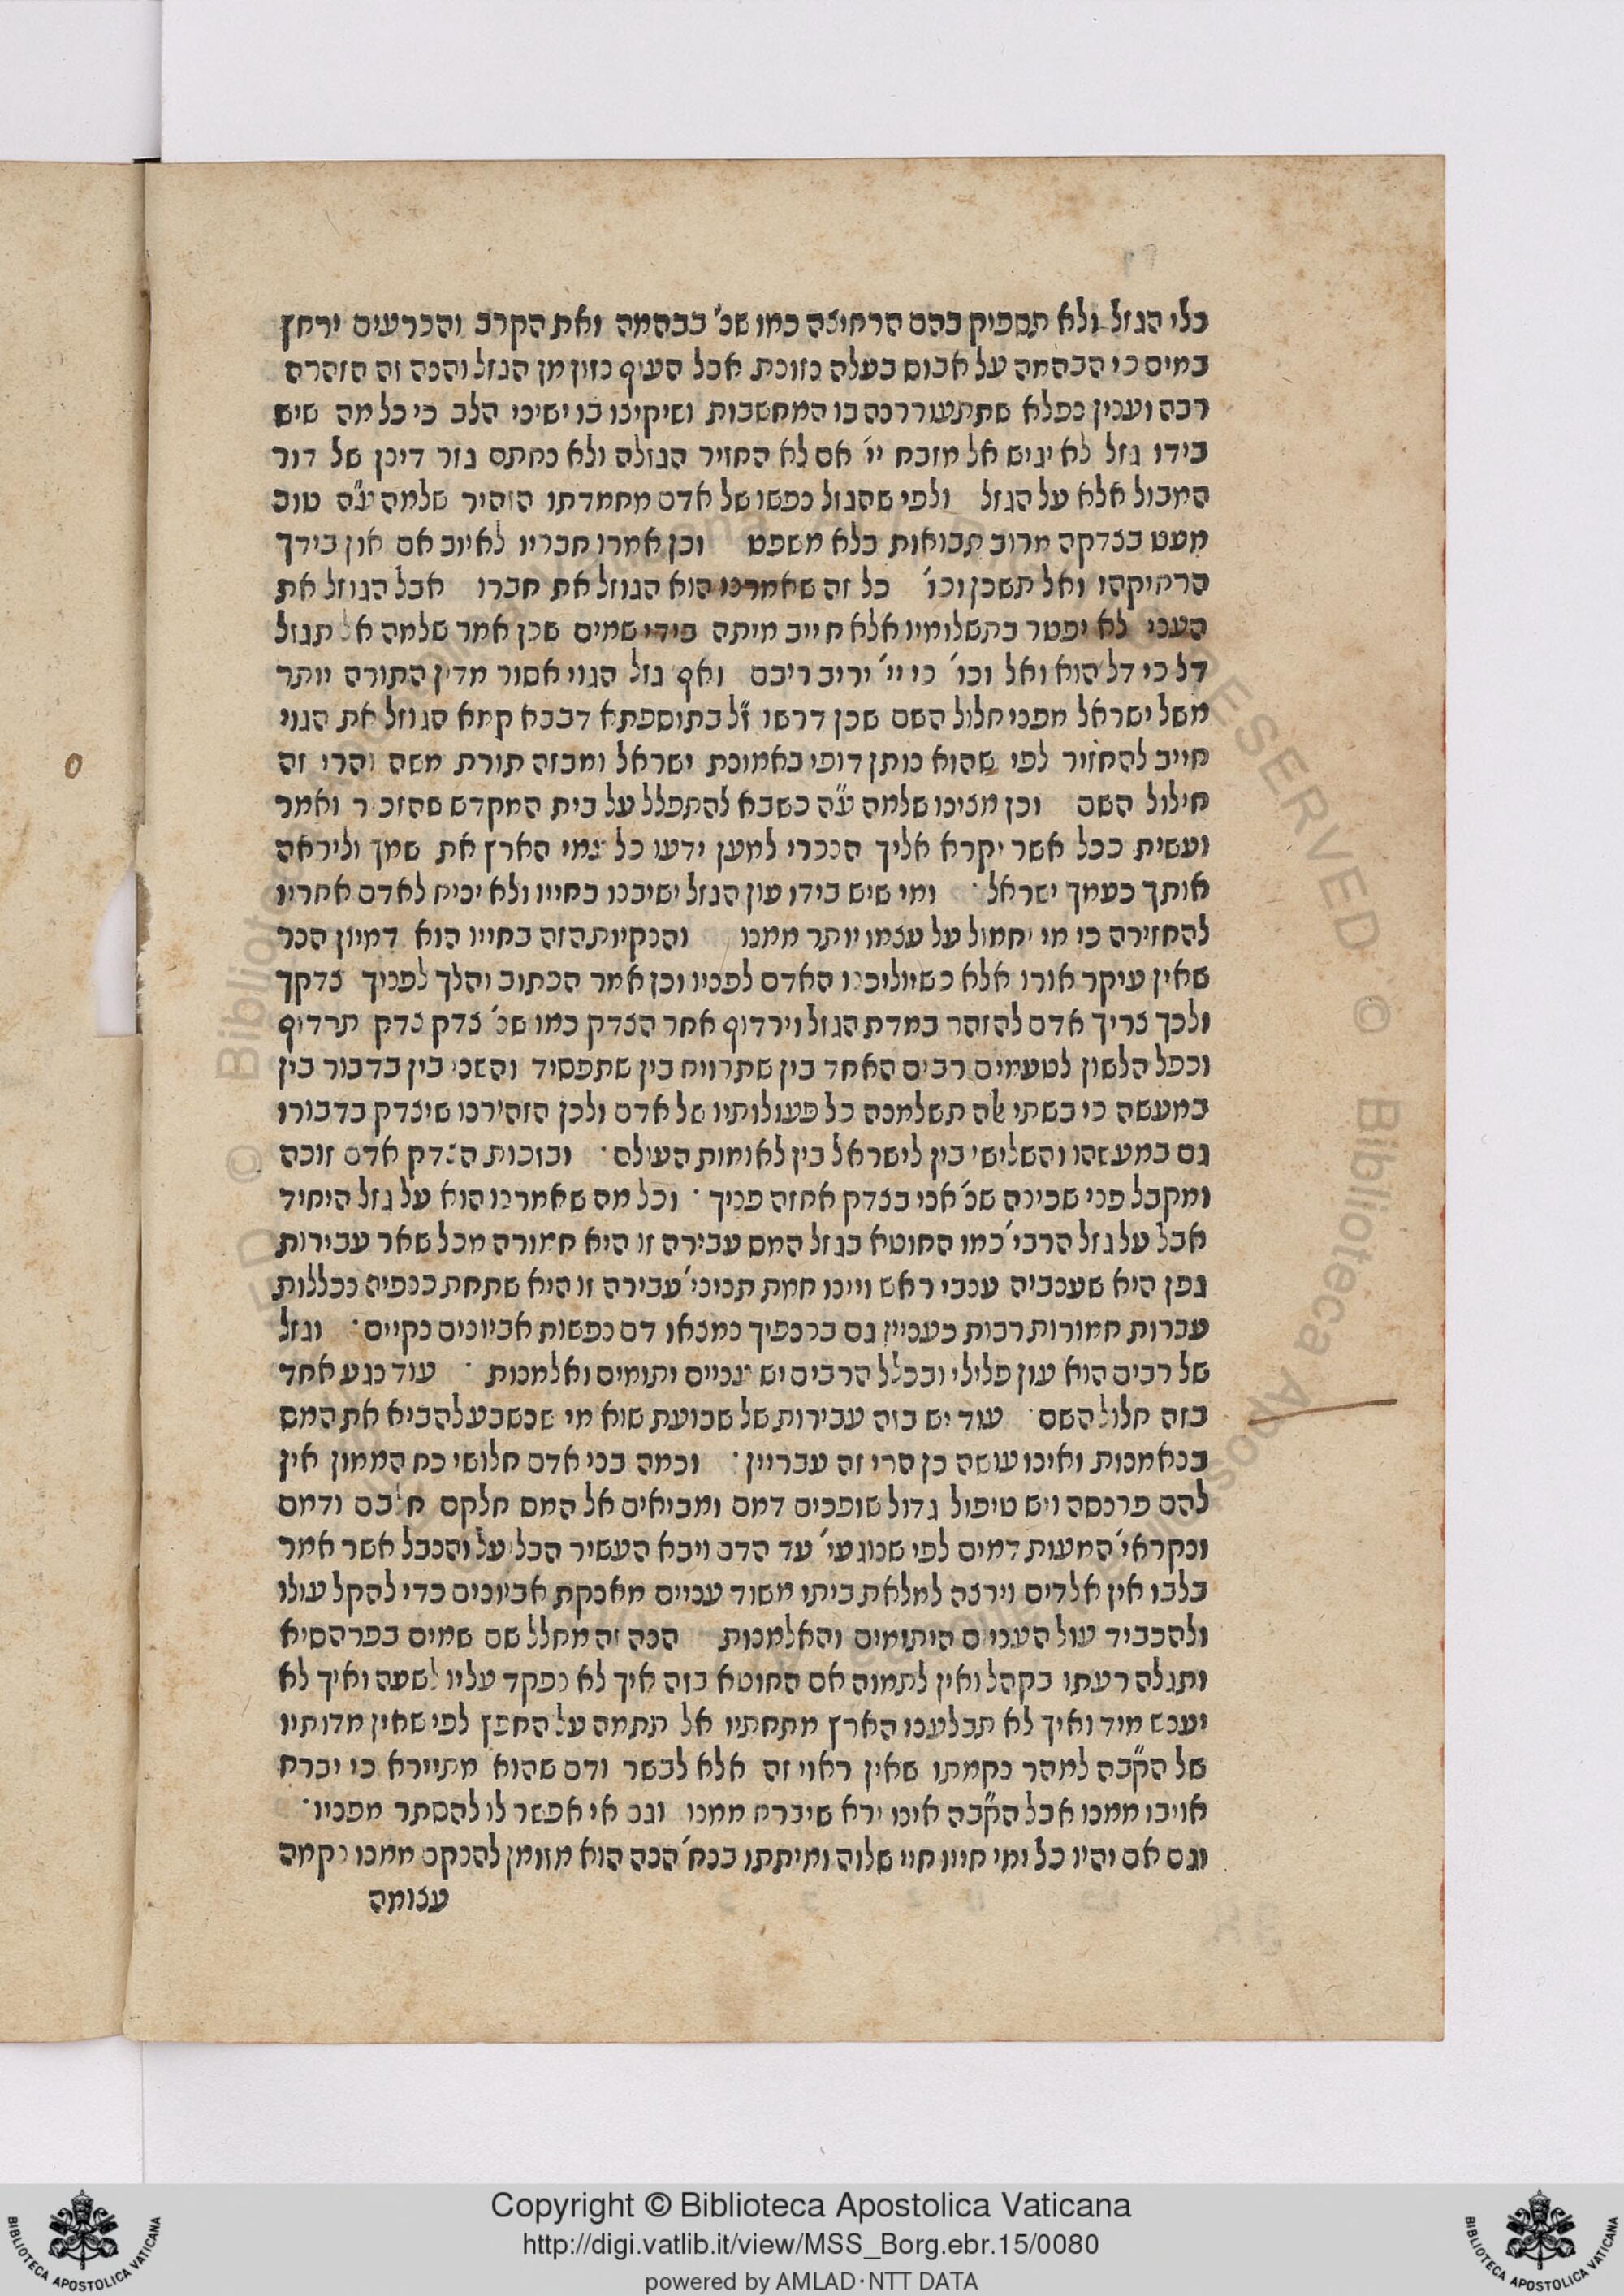 כלי הגזל ולא תספיק בהם הרחיצה כמו שכ' בבהמה ואת הקרב והכרעים ירחץ
במים כי הבהמה על אבוס בעלה נזונת אבל העוף נזון מן הגזל והנה זה הזהרה
רבה וענין נפלא שתתעורר נה בו המחשבות ושיקיצו בו ישיני הלב כי כל מה שיש
בידו גזל לא יגיש אל מזבח יי' אם לא החזיר הגזלה ולא נחתם גזר דינן של דור
המבול אלא על הגזל ולפי שהגזל נפשו של אדם מחמדתו הזהיר שלמה ע״ה טוב
מעט בצדקה מרוב תבואות בלא משפט וכן אמרו חבריו לאיוב אם און בידך
הרחיקהו ואל תשכן וכו' כל זה שאמרנו הוא הגוזל את חברו אבל הגוזל את
העני לא יפטר בתשלומיו אלא חייב מיתה בידי שמים שכן אמר שלמה אל תגזל
דל כי דל הוא ואל וכו' כי יי' יריב ריבם ואף גזל הגוי אסור מדין התורה יותר
משל ישראל מפני חלול השם שכן דרשו ז״ל בתוספתא דבבא קמא הגוזל את הגוי
חייב להחזיר לפי שהוא נותן דופי באמונת ישראל ומבזה תורת משה והרי זה
חילול השם וכן מצינו שלמה ע״ה כשבא להתפלל על בית המקדש שהזכיר ואמר
ועשית ככל אשר יקרא אליך הנכרי למען ידעו כל עמי הארץ את שמך וליראה
אותך כעמך ישראל· ומי שיש בידו עון הגזל ישיבנו בחייו ולא יניח לאדם אחריו
להחזירה כי מי יחמול על עצמו יותר ממנו והנקיות הזה בחייו הוא דמיון הנר
שאין עיקר אורו אלא כשיוליכנו האדם לפניו וכן אמר הכתוב והלך לפניך צדקך
ולכך צריך אדם להזהר במדת הגזל וירדוף אחר הצדק כמו שכ' צדק צדק תרדוף
וכפל הלשון לטעמים רבים האחד בין שתרויח בין שתפסיד והשני בין בדבור בין
במעשה כי בשתי אלה תשלמנה כל פעולותיו של אדם ולכן הזהירנו שיצדק בדבורו
גם במעשהו והשלישי בין לישראל בין לאומות העולם· ובזכות הצדק אדם זוכה
ומקבל פני שכינה שכ' אני בצדק אחזה פניך· וכל מה שאמרנו הוא על גזל היחיד
אבל על גזל הרבי' כמו החוטא בגזל המס עבירה זו היא חמורה מכל שאר עבירות
גפן היא שענביה ענבי ראש ויינו חמת תניני' עבירה זו היא שתחת כנפיה נכללות
עברות חמורות רבות כענין גם בכנפיך נמצאו דם נפשות אביונים נקיים· וגזל
של רבים הוא עון פלילי ובכלל הרבים יש עניים יתומים ואלמנות· עוד נגע אחד
בזה חלול השם· עוד יש בזה עבירות של שבועת שוא מי שנשבע להביא את המס
בנאמנות ואינו עושה כן הרי זה עבריין· וכמה בני אדם חלושי כח הממון אין
להם פרנסה ויש טיפול גדול שופכים דמם ומביאים אל המס חלקם חלבם ודמם
ונקראי' המעות דמים לפי שנוגעי' עד הדם ויבא העשיר הבליעל והנבל אשר אמר
בלבו אין אלדים וירצה למלאת ביתו משוד עניים מאנקת אביונים כדי להקל עולו
ולהכביד עול העניים היתומים והאלמנות הנה זה מחלל שם שמים בפרהסיא
ותגלה רעתו בקהל ואין לתמוה אם החוטא בזה איך לא נפקד עליו לשעה ואיך לא
יענש מיד ואיך לא תבלענו הארץ מתחתיו אל תתמה על החפץ לפי שאין מדותיו
של הק״בה למהר נקמתו שאין ראוי זה אלא לבשר ודם שהוא מתיירא כי יברח
אויבו ממנו אבל הק״בה אינו ירא שיברח ממנו וגם אי אפשר לו להסתר מפניו·
וגם אם יהיו כל ימי חייו חיי שלוה ומיתתו בנח' הנה הוא מזומן להנקם ממנו נקמה
עצומה
Copyright © Biblioteca Apostolica Vaticana
http://digi.vatlib.it/view/MSS_Borg.ebr.15/0080
powered by AMLAD·NTT DATA